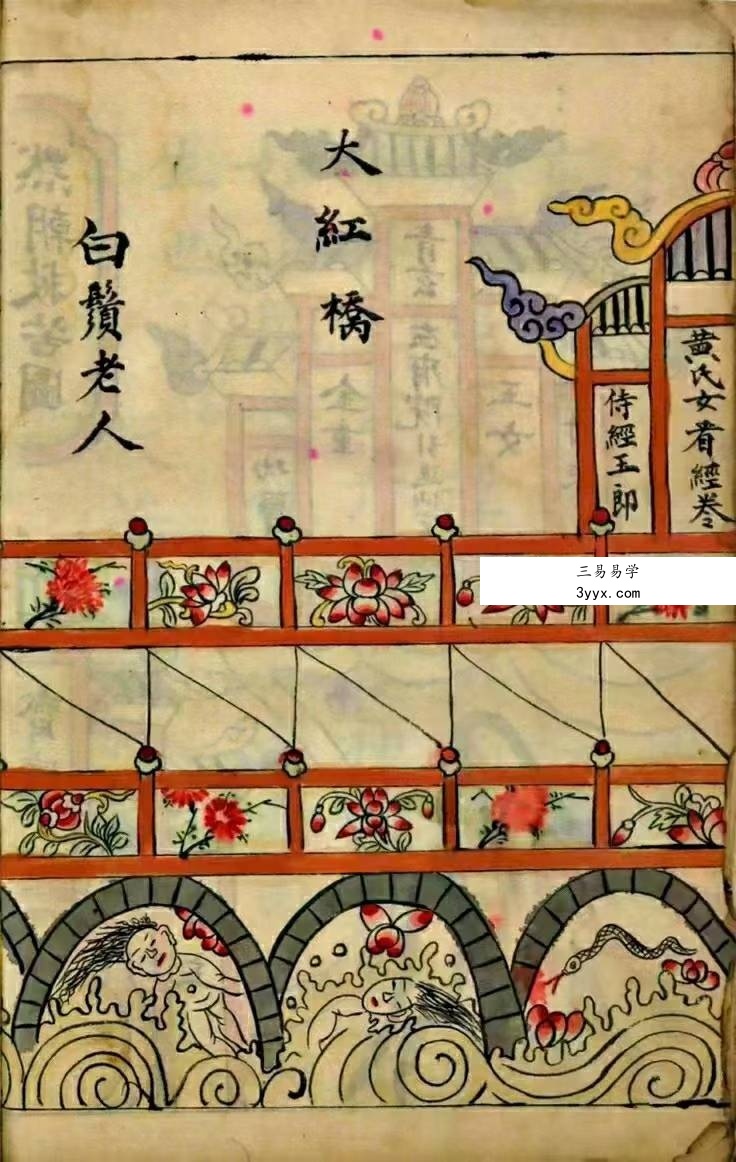 黄氏女看經卷
侍經玉郎
大紅橋
白鬚老人
三易易学
3yyx.com